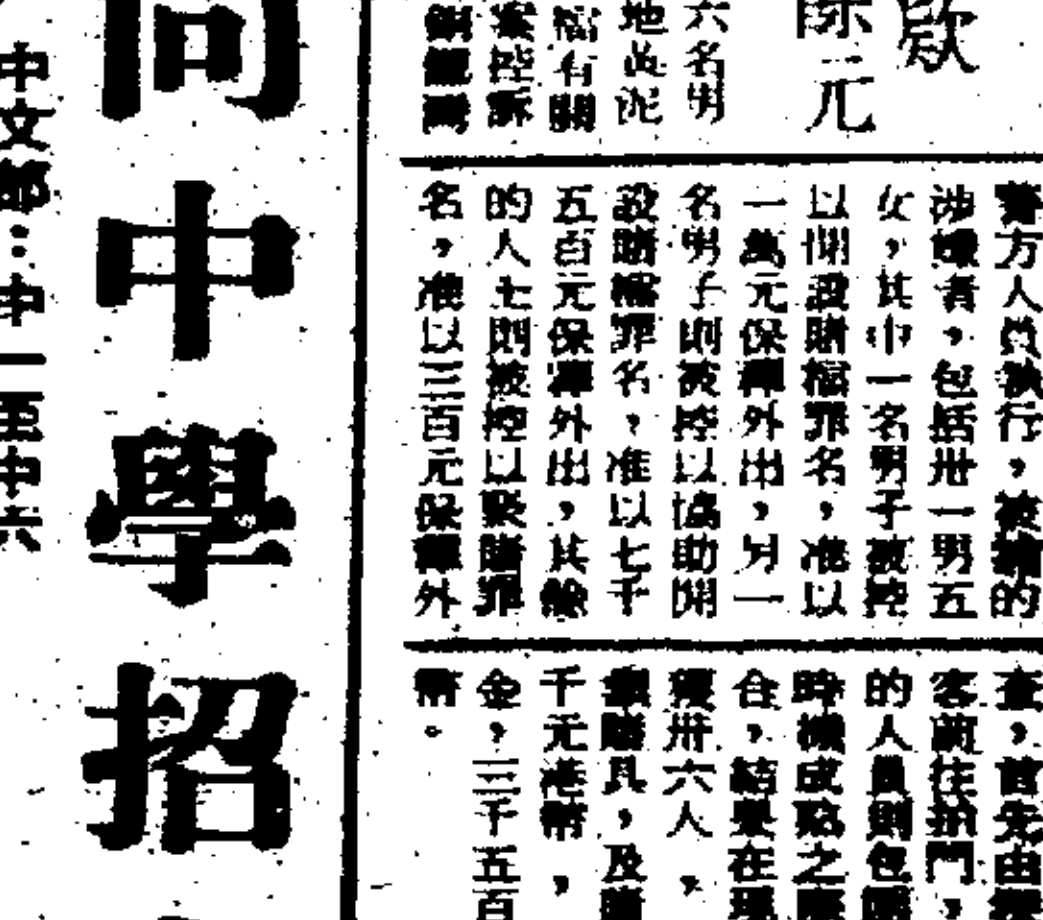 欵
元
六名男
地
有關
案控訴
警方人員執行，被捕的
涉嫌者，包括卅一男五
女，其中一名男子被控
以開設賭檔罪名，准以
一萬元保釋外出，另一
名男子則被控以協助開
設賭檔罪名，准以七千
五百元保釋外出，其餘
的人士則被控以聚賭罪
名，准以三百元保釋外
查，首先由
客前往拍門，
的人員則包
時機成熟之際
合，結果在現
獲卅六人，
賭具，及賭
千元港幣，
金，三千五百
幣。
同中學招
中文部：中一至中六